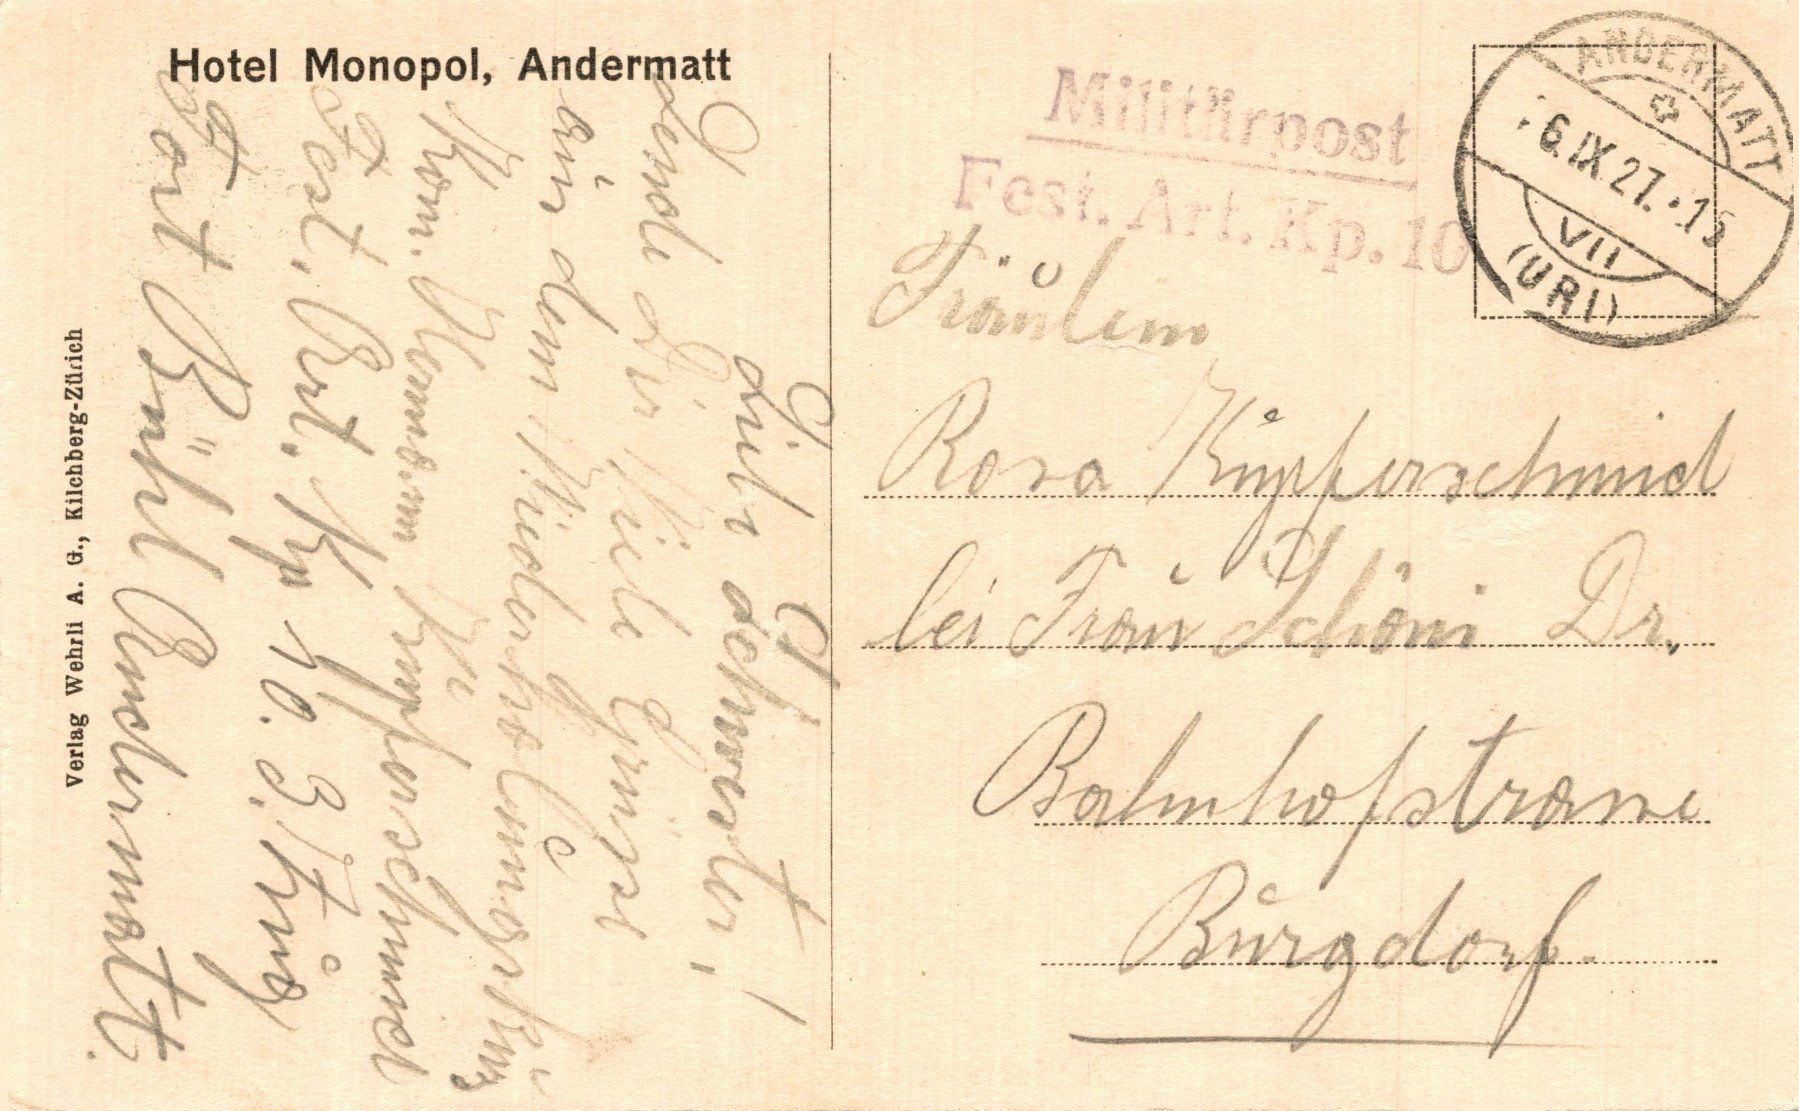 Hotel Monopol, Andermatt
Verlag Wehrli A. G., Kilchberg-Zürich
Militärpost
Fest. Art. Kp. 10
ANDERMATT
6.IX.27.-15
VII
(URI)
Fräulein
Rosa Kupferschmid
bei Frau Schöni Dr.,
Bahnhofstrasse
Burgdorf.
Liebe Schwester,
Sende Dir viele Grüsse
aus dem Wiederholungskurs
Kan. Hermann Kupferschmid
Fest. Art. Kp 10. 3. Zug
Fort Bühl Andermatt.